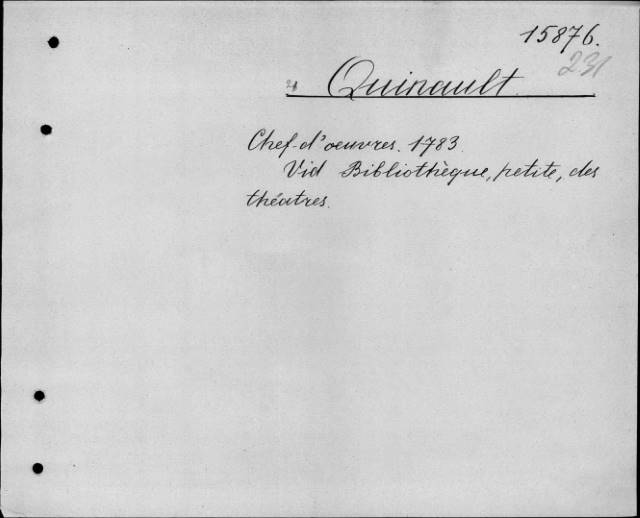 15876.
231
Quinault.
Chef-d'oeuvres. 1783.
Vid Bibliothèque, petite, des
théatres.